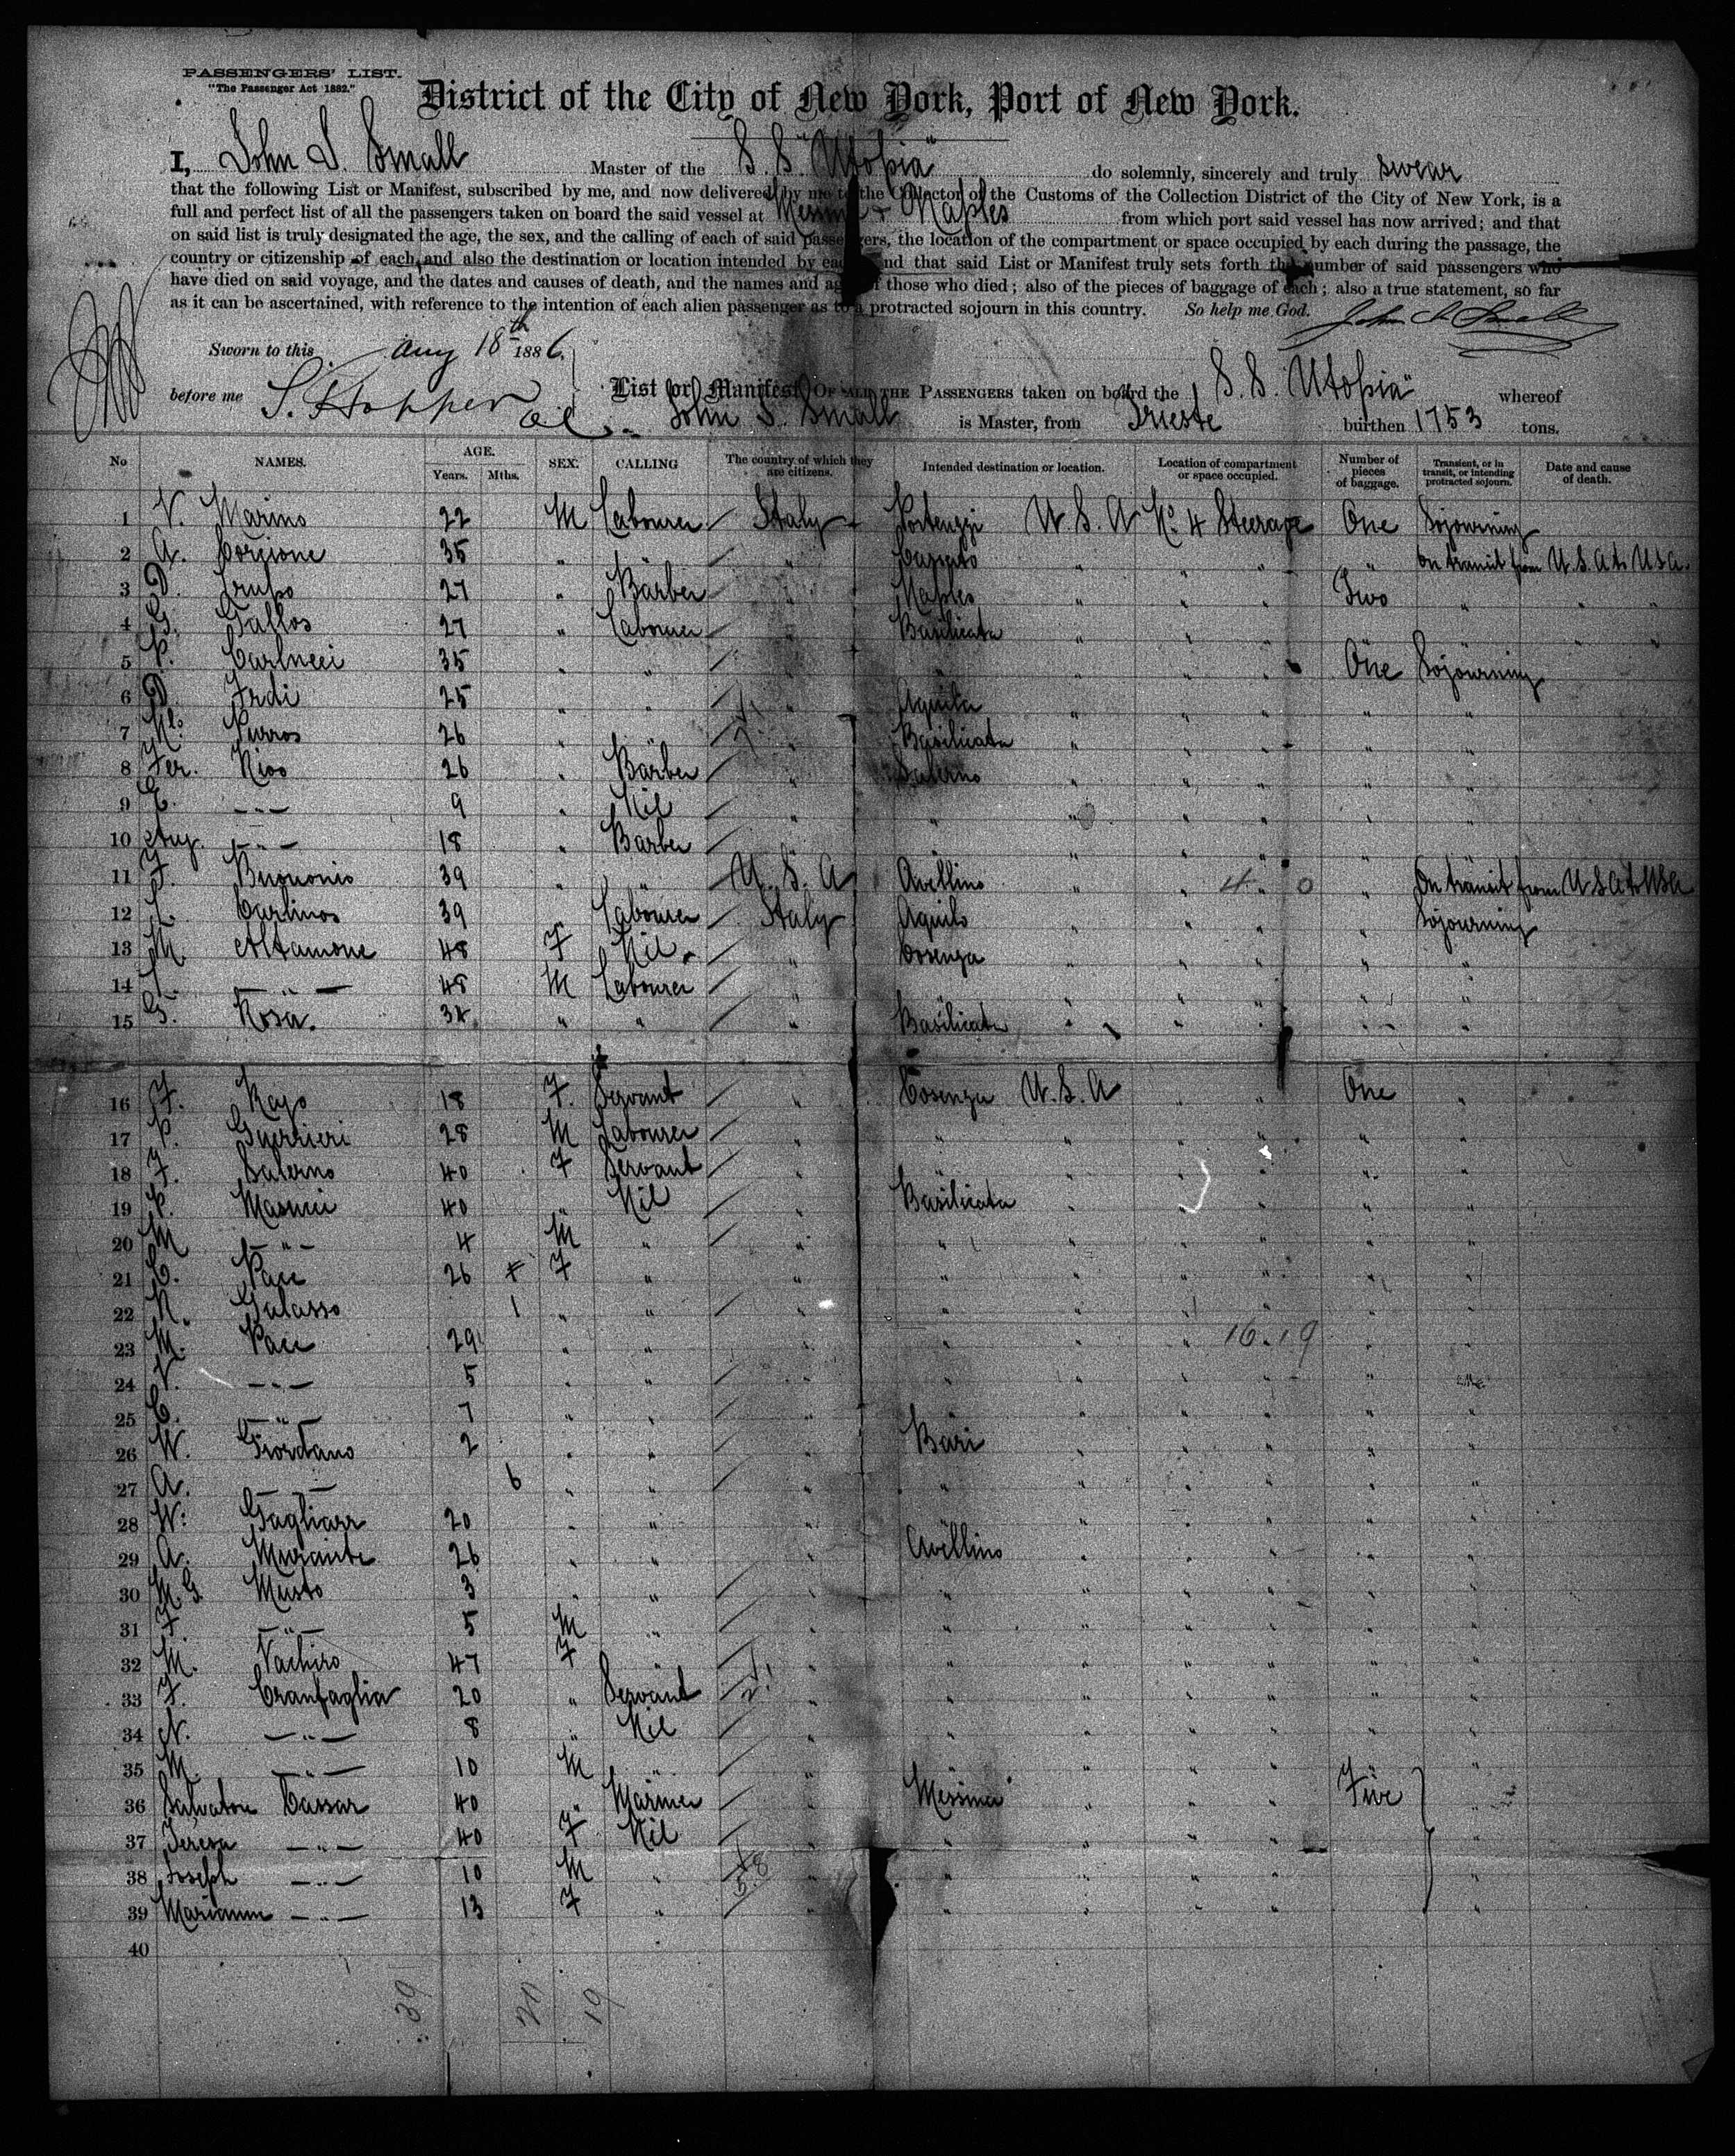 PASSENGERS' LIST.
"The Passenger Act 1882."
District of the City of New York, Port of New York.
I, John S. Small Master of the S. S. "Utopia" do solemnly, sincerely and truly swear
that the following List or Manifest, subscribed by me, and now delivered by me to the Collector of the Customs of the Collection District of the City of New York, is a
full and perfect list of all the passengers taken on board the said vessel at Messina + Naples from which port said vessel has now arrived; and that
on said list is truly designated the age, the sex, and the calling of each of said passengers, the location of the compartment or space occupied by each during the passage, the
country or citizenship of each, and also the destination or location intended by each and that said List or Manifest truly sets forth the number of said passengers who
have died on said voyage, and the dates and causes of death, and the names and ages of those who died; also of the pieces of baggage of each; also a true statement, so far
as it can be ascertained, with reference to the intention of each alien passenger as to a protracted sojourn in this country. So help me God. John S. Small
Sworn to this Aug 18th 1886.
before me S. Hopper
List or Manifest OF ALL THE PASSENGERS taken on board the S. S. "Utopia" whereof
John S. Small is Master, from Trieste burthen 1753 tons.
No NAMES. AGE. Years. Mths. SEX. CALLING The country of which they are citizens. Intended destination or location. Location of compartment or space occupied. Number of pieces of baggage. Transient, or in transit, or intending protracted sojourn. Date and cause of death.
1 V. Marino 22 M Labourer Italy U. S. A No 4 Steerage One Sojourning
2 A. 35 " " " " " " " On transit from U.S.A to USA.
3 D. 27 " Barber " Naples " " " Two " " "
4 G. Gallos 27 " Labourer " Basilicata " " " " " " "
5 P. Carlucci 35 " " " " " " " One Sojourning
6 D. 25 " " " Aquila " " " " "
7 26 " " " Basilicata " " " " "
8 Fer. 26 " Barber " Salerno " " " " "
9 — " — 9 " Nil " " " " " " "
10 Aug. — " — 18 " Barber " " " " " " "
11 F. Buononio 39 " " U. S. A Avellino " " 4 " 0 " On transit from U S A to USA
12 Carlinos 39 Labourer Italy Aquila " " " " Sojourning
13 M. Altamone 48 F Nil. " Cosenza " " " " "
14 — " — 48 M Labourer " " " " " " "
15 G. Rosa. " " " Basilicata " " " " "
16 F. 18 F. Servant " Cosenza U. S. A " " One "
17 P. Guerrieri 28 M Labourer " " " " " " "
18 F. Salerno 40 F Servant " " " " " " "
19 P. 40 " Nil " Basilicata " " " " "
20 M — " — 4 M " " " " " " " "
21 C. Pace 26 F " " " " " " " "
22 N. Galasso 1 " " " " " " " " "
23 M. Pace 29 " " " " " " 16.19 " "
24 V. — " — 5 " " " " " " " " "
25 C. — " — 7 " " " " " " " " "
26 Giordano 2 " " " Bari " " " " "
27 A. — " — 6 " " " " " " " " "
28 20 " " " " " " " " "
29 A. 26 " " " Avellino " " " " "
30 M. G. Musto 3 " " " " " " " " "
31 F. — " — 5 M " " " " " " " "
32 M. 47 F " " " " " " " "
33 F. Cranfaglia 20 " Servant " " " " " " "
34 N. — " — 8 " Nil " " " " " " "
35 M. — " — 10 M " " " " " " " "
36 Salvatore Cassar 40 " Mariner " Messina " " " Five "
37 Teresa — " — 40 F Nil " " " " " "
38 Joseph — " — 10 M " " " " " " "
39 — " — 13 F " " " " " " "
40
39 20 19